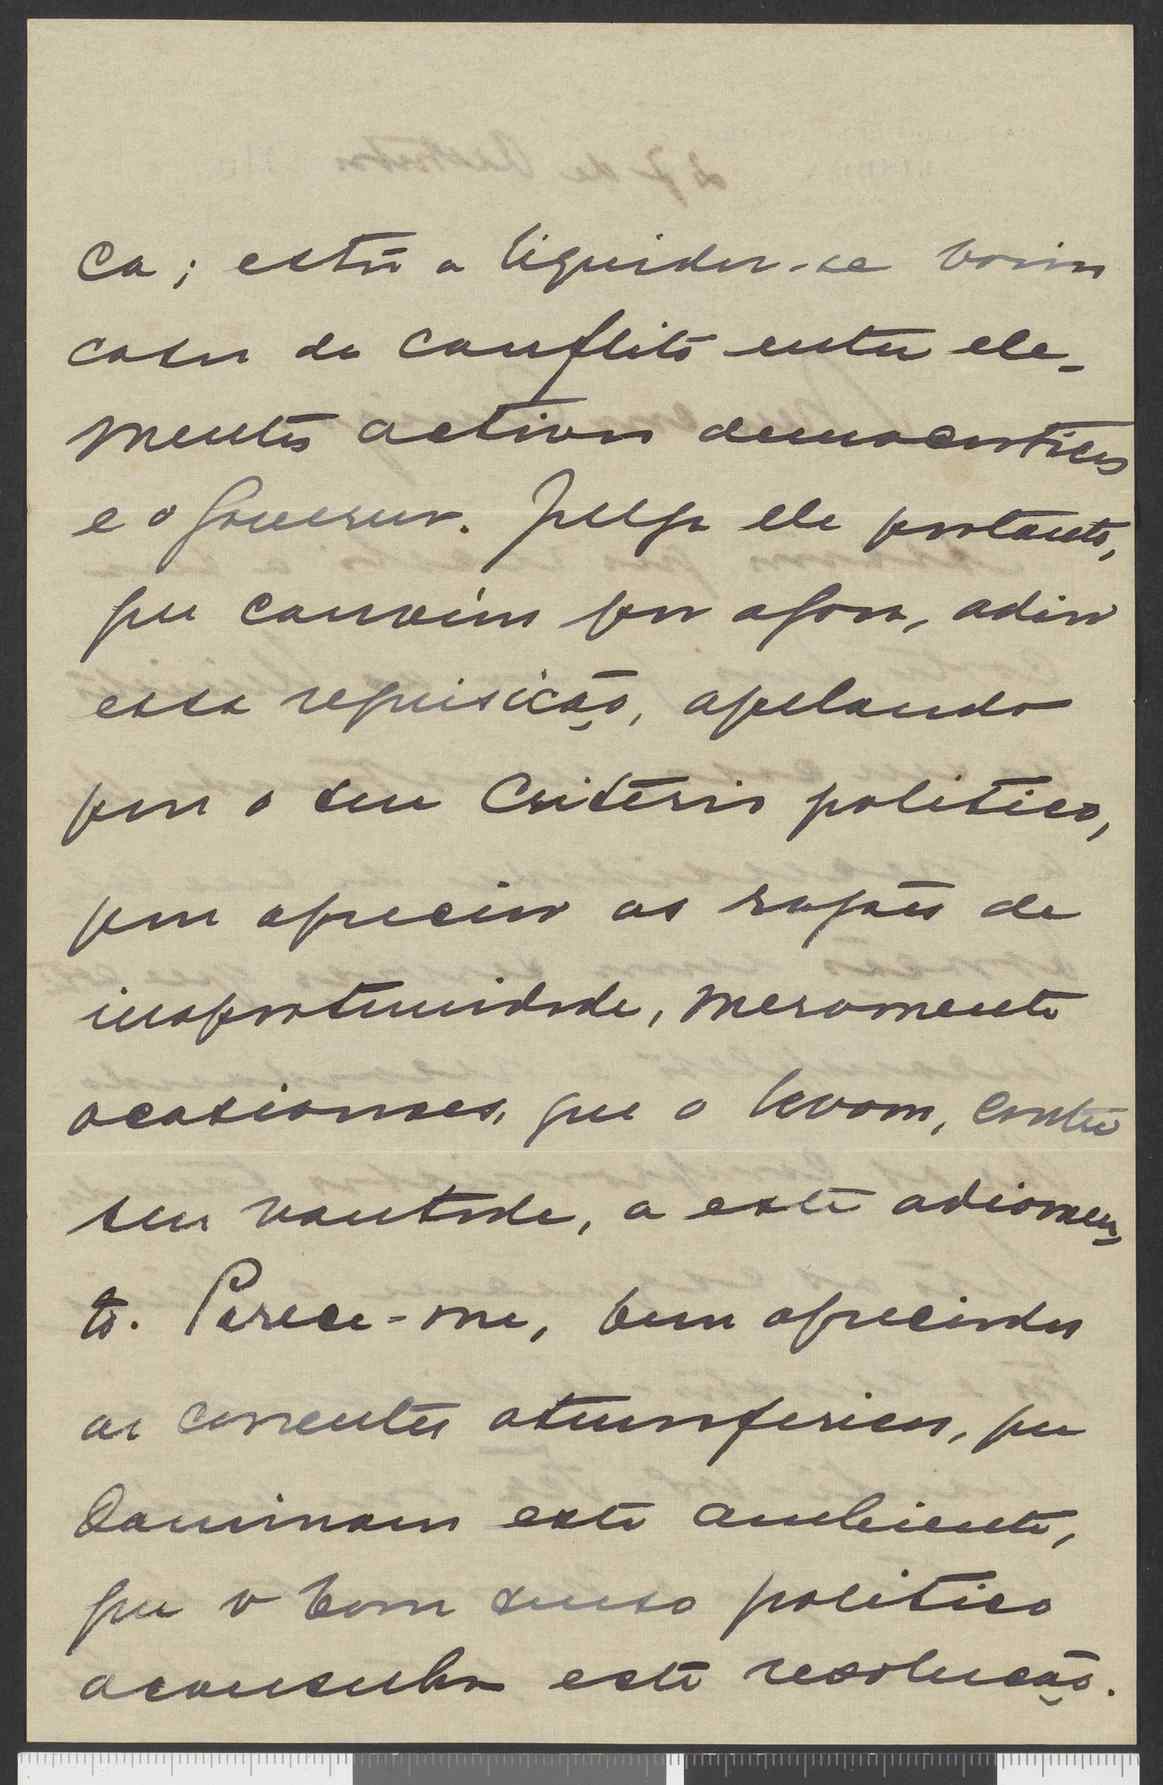 ca; está a liquidar-se varios
casos de conflito entre ele-
mentos activos democraticos
e o Governo. Julga ele portanto,
que convém por agora, adiar
essa requisição, apelando
para o seu criterio politico,
para apreciar as razões de
inoportunidade, meramente
ocasionaes, que o levam, contra
sua vontade, a este adiamen-
to. Parece-me, bem apreciadas
as correntes atmosfericas, que
dominam este ambiente,
que o bom senso politico
aconselha esta resolução.